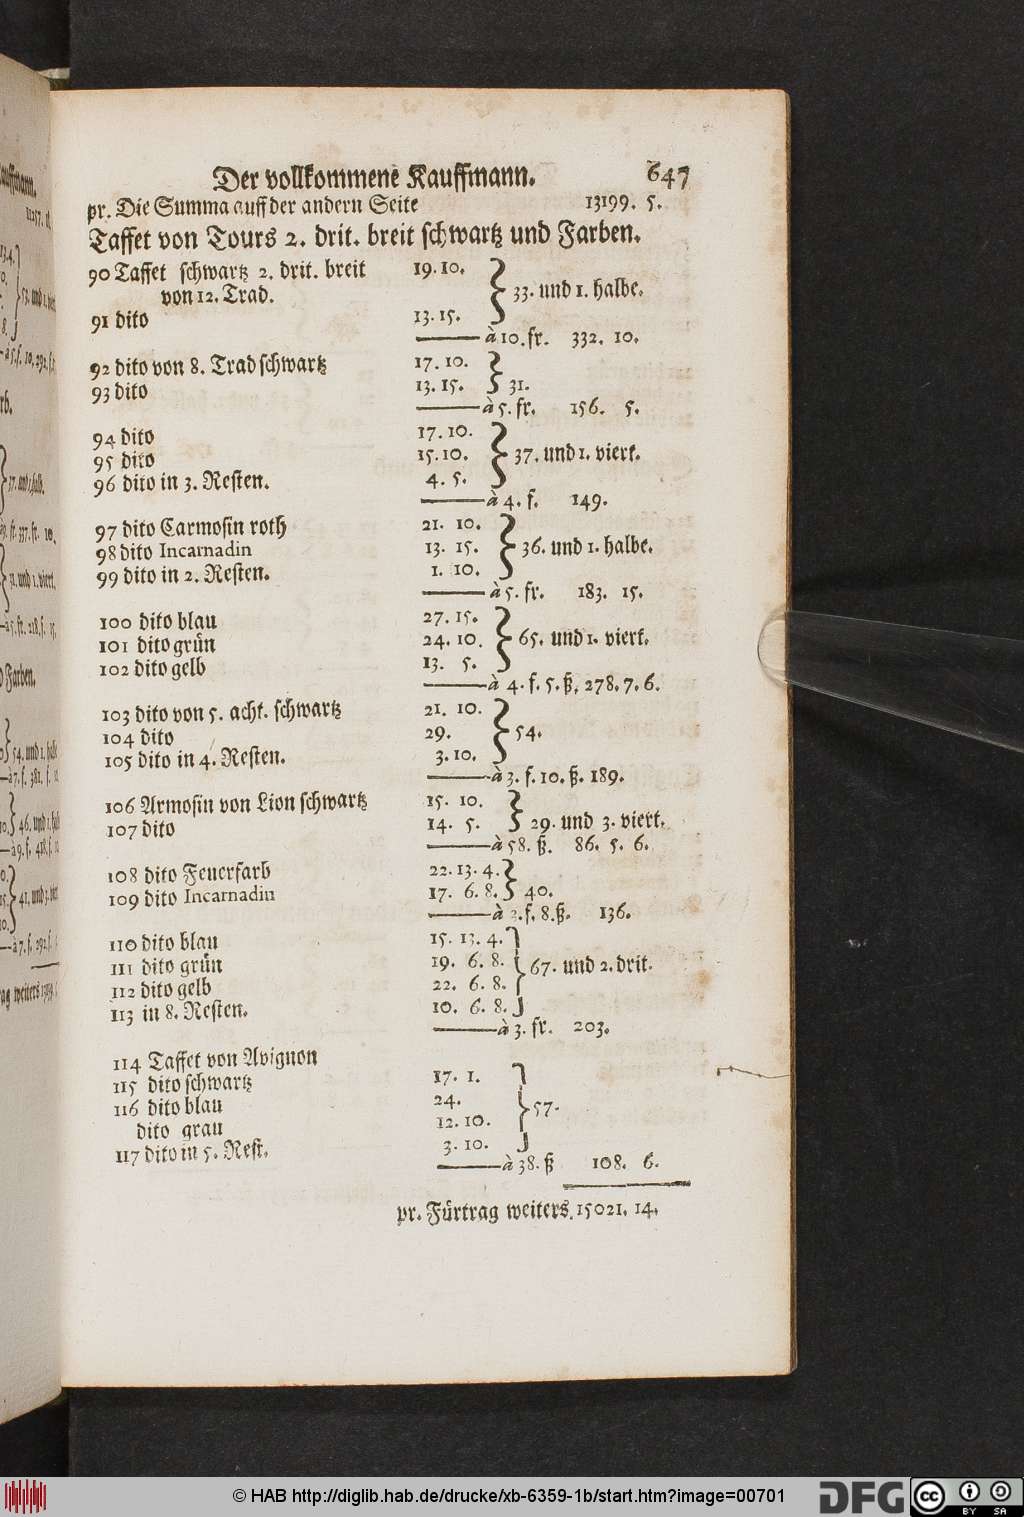 Der vollkommene Kauffmann. 647
pr. Die Summa auff der andern Seite 13199. 5.
Taffet von Tours 2. drit. breit schwartz und Farben.
90 Taffet schwartz 2. drit. breit 19. 10.
von 12. Trad. } 33. und 1. halbe.
91 dito 13. 15.
à 10. fr. 332. 10.
92 dito von 8. Trad schwartz 17. 10.
93 dito 13. 15. } 31.
à 5. fr. 156. 5.
94 dito 17. 10.
95 dito 15. 10. } 37. und 1. viert.
96 dito in 3. Resten. 4. 5.
à 4. f. 149.
97 dito Carmosin roth 21. 10.
98 dito Incarnadin 13. 15. } 36. und 1. halbe.
99 dito in 2. Resten. 1. 10.
à 5. fr. 183. 15.
100 dito blau 27. 15.
101 dito grün 24. 10. } 65. und 1. viert.
102 dito gelb 13. 5.
à 4. f. 5. ß. 278. 7. 6.
103 dito von 5. acht. schwartz 21. 10.
104 dito 29. } 54.
105 dito in 4. Resten. 3. 10.
à 3. f. 10. ß. 189.
106 Armosin von Lion schwartz 15. 10.
107 dito 14. 5. } 29. und 3. viert.
à 58. ß. 86. 5. 6.
108 dito Feuerfarb 22. 13. 4.
109 dito Incarnadin 17. 6. 8. } 40.
à 3. f. 8. ß. 136.
110 dito blau 15. 13. 4.
111 dito grün 19. 6. 8. } 67. und 2. drit.
112 dito gelb 22. 6. 8.
113 in 8. Resten. 10. 6. 8.
à 3. fr. 203.
114 Taffet von Avignon
115 dito schwartz 17. 1.
116 dito blau 24. } 57.
dito grau 12. 10.
117 dito in 5. Rest. 3. 10.
à 38. ß 108. 6.
pr. Fürtrag weiters. 15021. 14.
© HAB http://diglib.hab.de/drucke/xb-6359-1b/start.htm?image=00701
DFG
cc BY SA